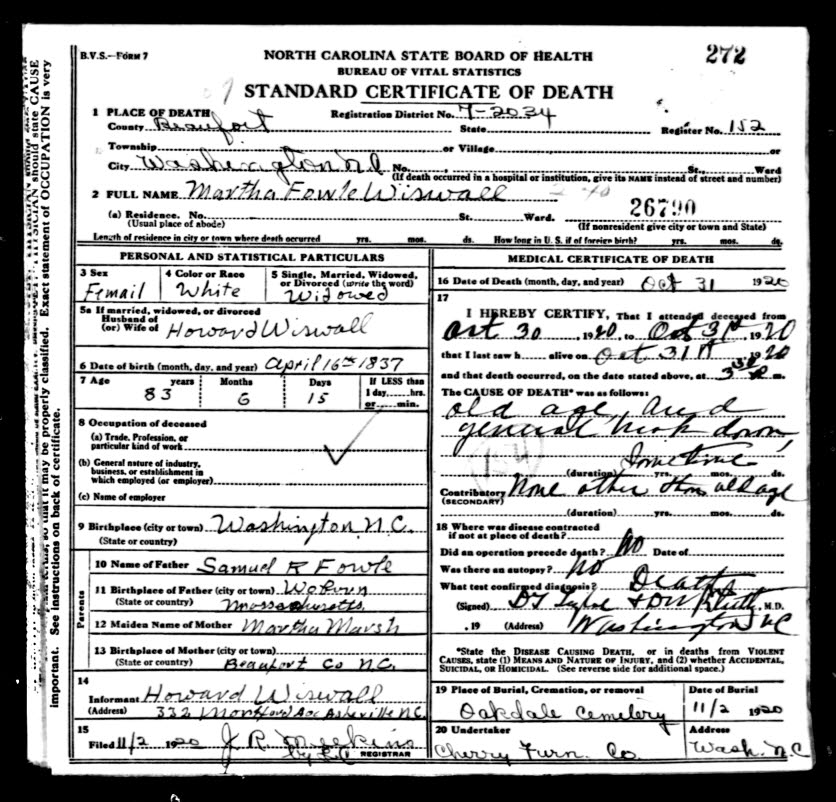 B.V.S.—FORM 7
NORTH CAROLINA STATE BOARD OF HEALTH
272
BUREAU OF VITAL STATISTICS
STANDARD CERTIFICATE OF DEATH
1 PLACE OF DEATH Registration District No. 7-2034
County Beaufort State Register No. 152
Township or Village or
City Washington N C No. St., Ward
(If death occurred in a hospital or institution, give its NAME instead of street and number)
2 FULL NAME Martha Fowle Wiswall
26790
(a) Residence. No. St. Ward.
(Usual place of abode) (If nonresident give city or town and State)
Length of residence in city or town where death occurred yrs. mos. ds. How long in U. S. if of foreign birth? yrs. mos. ds.
PERSONAL AND STATISTICAL PARTICULARS
3 Sex 4 Color or Race 5 Single, Married, Widowed, or Divorced (write the word)
Femail White Widowed
5a If married, widowed, or divorced
Husband of
(or) Wife of Howard Wiswall
6 Date of birth (month, day, and year) April 16th 1837
7 Age years Months Days If LESS than 1 day, hrs. or min.
83 6 15
8 Occupation of deceased
(a) Trade, Profession, or
particular kind of work
(b) General nature of industry,
business, or establishment in
which employed (or employer)
(c) Name of employer
9 Birthplace (city or town) Washington, N.C.
(State or country)
Parents
10 Name of Father Samuel R Fowle
11 Birthplace of Father (city or town) Woburn
(State or country) Massachusetts
12 Maiden Name of Mother Martha Marsh
13 Birthplace of Mother (city or town)
(State or country) Beaufort Co N.C.
14
Informant Howard Wiswall
(Address) 332 Ave Asheville N.C.
15
Filed 11/2 1920 J R Meekins
by
REGISTRAR
MEDICAL CERTIFICATE OF DEATH
16 Date of Death (month, day, and year) Oct 31 1920
17
I HEREBY CERTIFY, That I attended deceased from
Oct 30, 1920, to Oct 31st 1920
that I last saw h alive on Oct 31st 1920
and that death occurred, on the date stated above, at 3 m.
The CAUSE OF DEATH* was as follows:
old age, and
general down,
154
Sometime
(duration) yrs. mos. ds.
Contributory None other than old age
(SECONDARY)
(duration) yrs. mos. ds.
18 Where was disease contracted
if not at place of death?
Did an operation precede death? No Date of
Was there an autopsy? No
What test confirmed diagnosis? Death
(Signed) DT Tayloe M.D.
, 19 (Address) Washington NC
*State the DISEASE CAUSING DEATH, or in deaths from VIOLENT
CAUSES, state (1) MEANS AND NATURE OF INJURY, and (2) whether ACCIDENTAL,
SUICIDAL, OR HOMICIDAL. (See reverse side for additional space.)
19 Place of Burial, Cremation, or removal Date of Burial
Oakdale Cemetery 11/2 1920
20 Undertaker Address
Cherry Furn. Co. Wash. N.C
PHYSICIAN should state CAUSE
Exact statement of OCCUPATION is very
so that it may be properly classified.
important. See instructions on back of certificate.